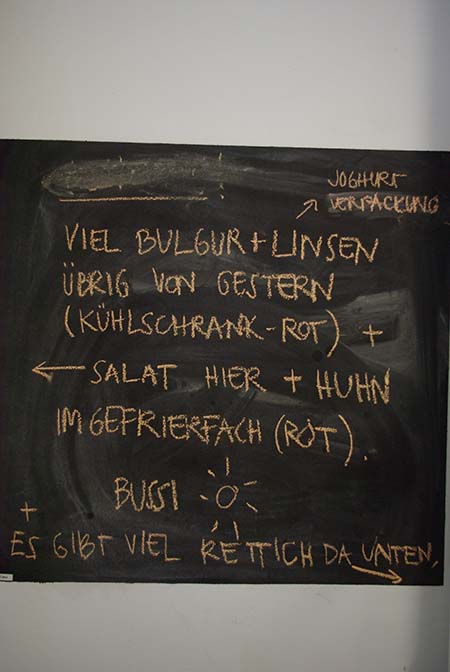 JOGHURT
VERPACKUNG
VIEL BULGUR + LINSEN
ÜBRIG VON GESTERN
(KÜHLSCHRANK - ROT) +
← SALAT HIER + HUHN
IM GEFRIERFACH (ROT).
BUSSI
+
ES GIBT VIEL RETTICH DA UNTEN,